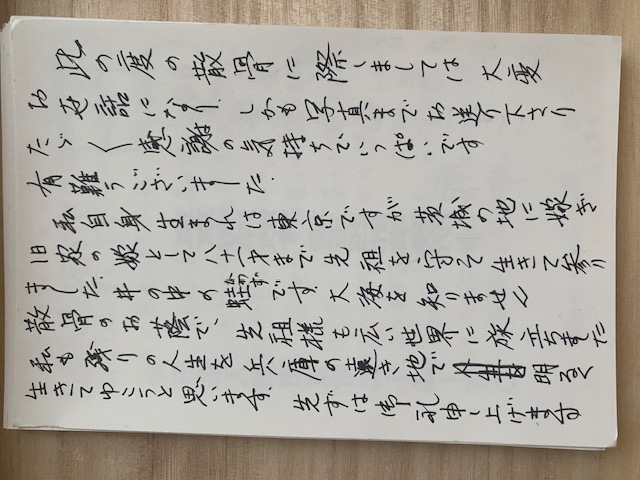 此の度の散骨に際しましては 大変
お世話になり、しかも写真までお送り下さり
たゞ〱感謝の気持ちでいっぱいです
有難うございました.
私自身生まれは東京ですが茨城の地に嫁ぎ
旧家の嫁として八十一才まで先祖を守って生きて参り
ました.井の中の蛙かわずです.大海を知りません
散骨のお蔭で、先祖様も広い世界に旅立ちました
私も残りの人生を兵庫の遠き地で 明るく
生きてゆこうと思います. 先ずは御礼申し上げます